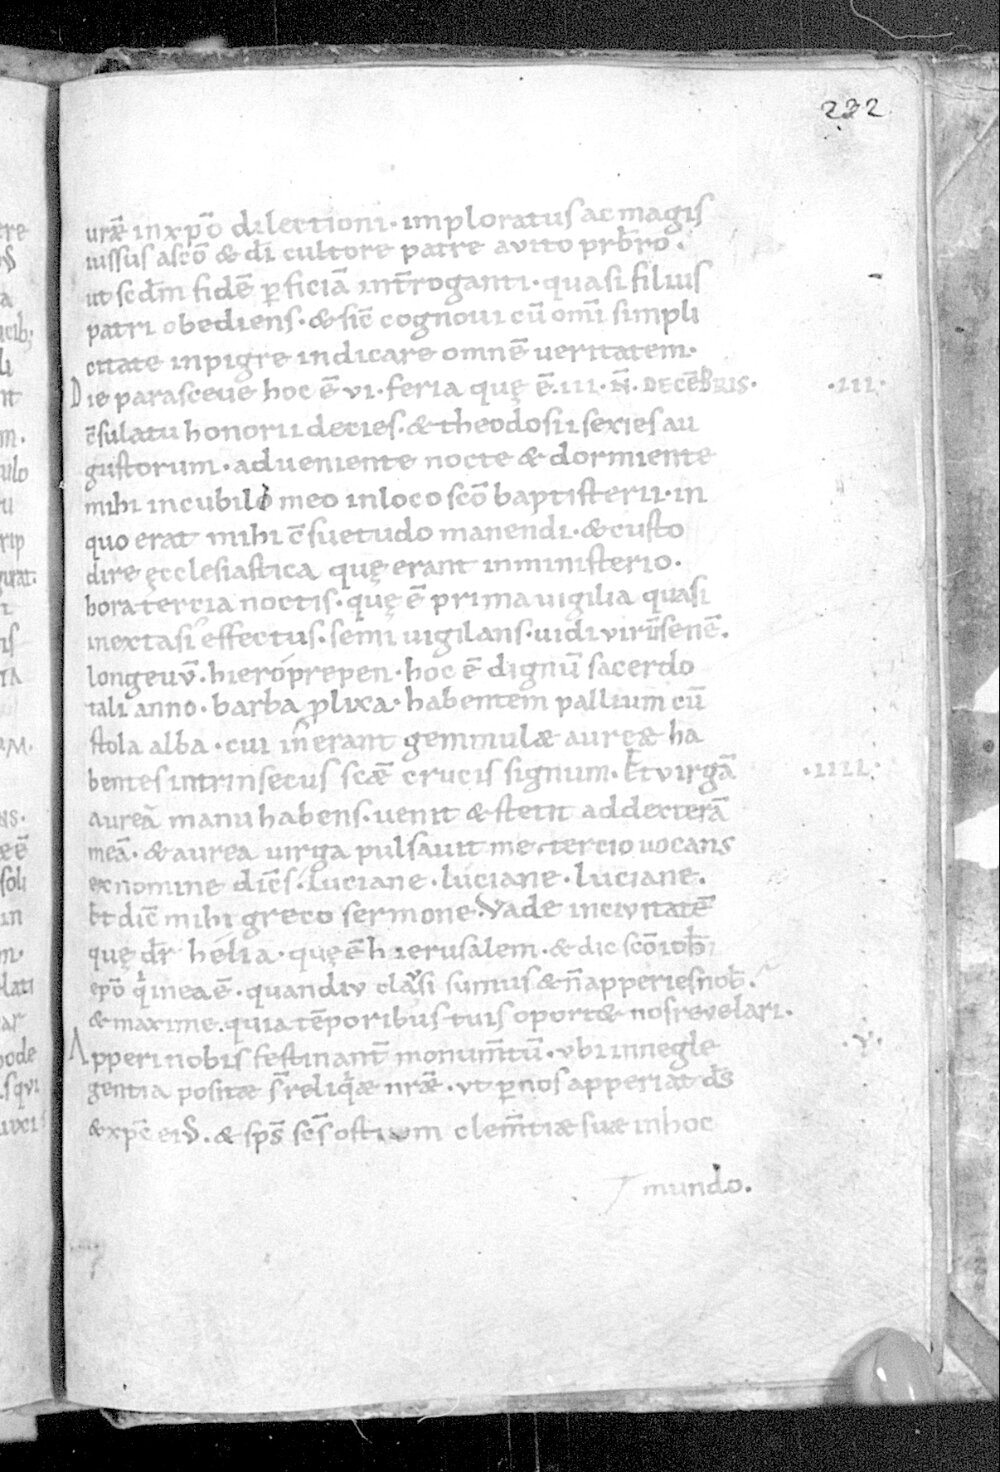 232
urē in xpō dilectioni · imploratus ac magis
iussus a scō & dī cultore patre avito prb̄ro .
ut scdm̄ fidē pficiā int̄roganti · quasi filius
patri obediens · & sic̄ cognovi cū om̄i simpli
citate inpigre indicare omnē ueritatem ·
Die parasceue hoc ē vi · feria quę ē . iii · N̄ . DECĒBRIS · · iii ·
c̄sulatu honorii decies · & theodosii sexies au
gustorum · adueniente nocte & dormiente
mihi in cubilo meo in loco scō baptisterii · in
quo erat mihi c̄suetudo manendi · & custo
dire ęcclesiastica quę erant in ministerio .
hora tercia noctis · quę ē prima uigilia quasi
in extasi effectus · semi uigilans · uidi virū senē .
longeuū . hieroprepen · hoc ē dignū sacerdo
tali anno · barba plixa · habentem pallium cū
stola alba · cui in̄erant gemmulæ aureæ ha
bentes intrinsecus scǣ crucis signum · Et virgā · iiii ·
aureā manu habens · uenit & stetit ad dexterā
meā · & aurea uirga pulsauit me · tercio uocans
ex nomine dicēs · Luciane · luciane · luciane .
Et dic̄ mihi greco sermone · Vade in civitatē
quę dr̄ hélia · quę ē hierusalem · & dic scō ioh̄i
epō qi in ea ē · quandiv clausi sumus & n̄ apperies nob̄ .
& maxime . quia tēporibus tuis oport& nos revelari .
Apperi nobis festinant̄ monum̄tū · vbi in negle · v ·
gentia positæ s̄ reliqiæ nrǣ · vt p nos apperiat ds̄
& xpc̄ ei9 . & sps̄ scs̄ ostium clem̄tiæ suæ in hoc
mundo .